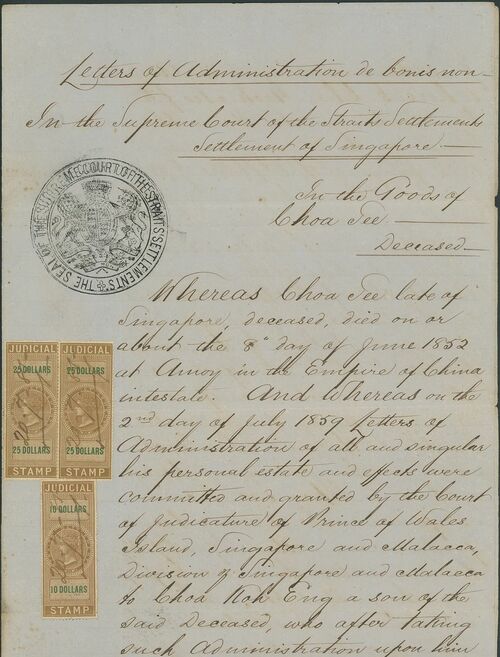 Letters of Administration de bonis non
In the Supreme Court of the Straits Settlements
Settlement of Singapore
THE SEAL OF THE SUPREME COURT OF THE STRAITS SETTLEMENTS
In the Goods of
Choa Tee
Deceased
Whereas Choa Tee late of
Singapore, deceased, died on or
about the 8" day of June 1852
at Amoy in the Empire of China
intestate. And Whereas on the
2nd day of July 1859 Letters of
Administration of all and singular
his personal estate and effects were
committed and granted by the Court
of Judicature of Prince of Wales
Island, Singapore and Malacca,
Division of Singapore and Malacca
to Choa Koh Eng a son of the
said Deceased, who after taking
such Administration upon him
JUDICIAL
25 DOLLARS
25 DOLLARS
STAMP
JUDICIAL
25 DOLLARS
25 DOLLARS
STAMP
JUDICIAL
10 DOLLARS
10 DOLLARS
STAMP